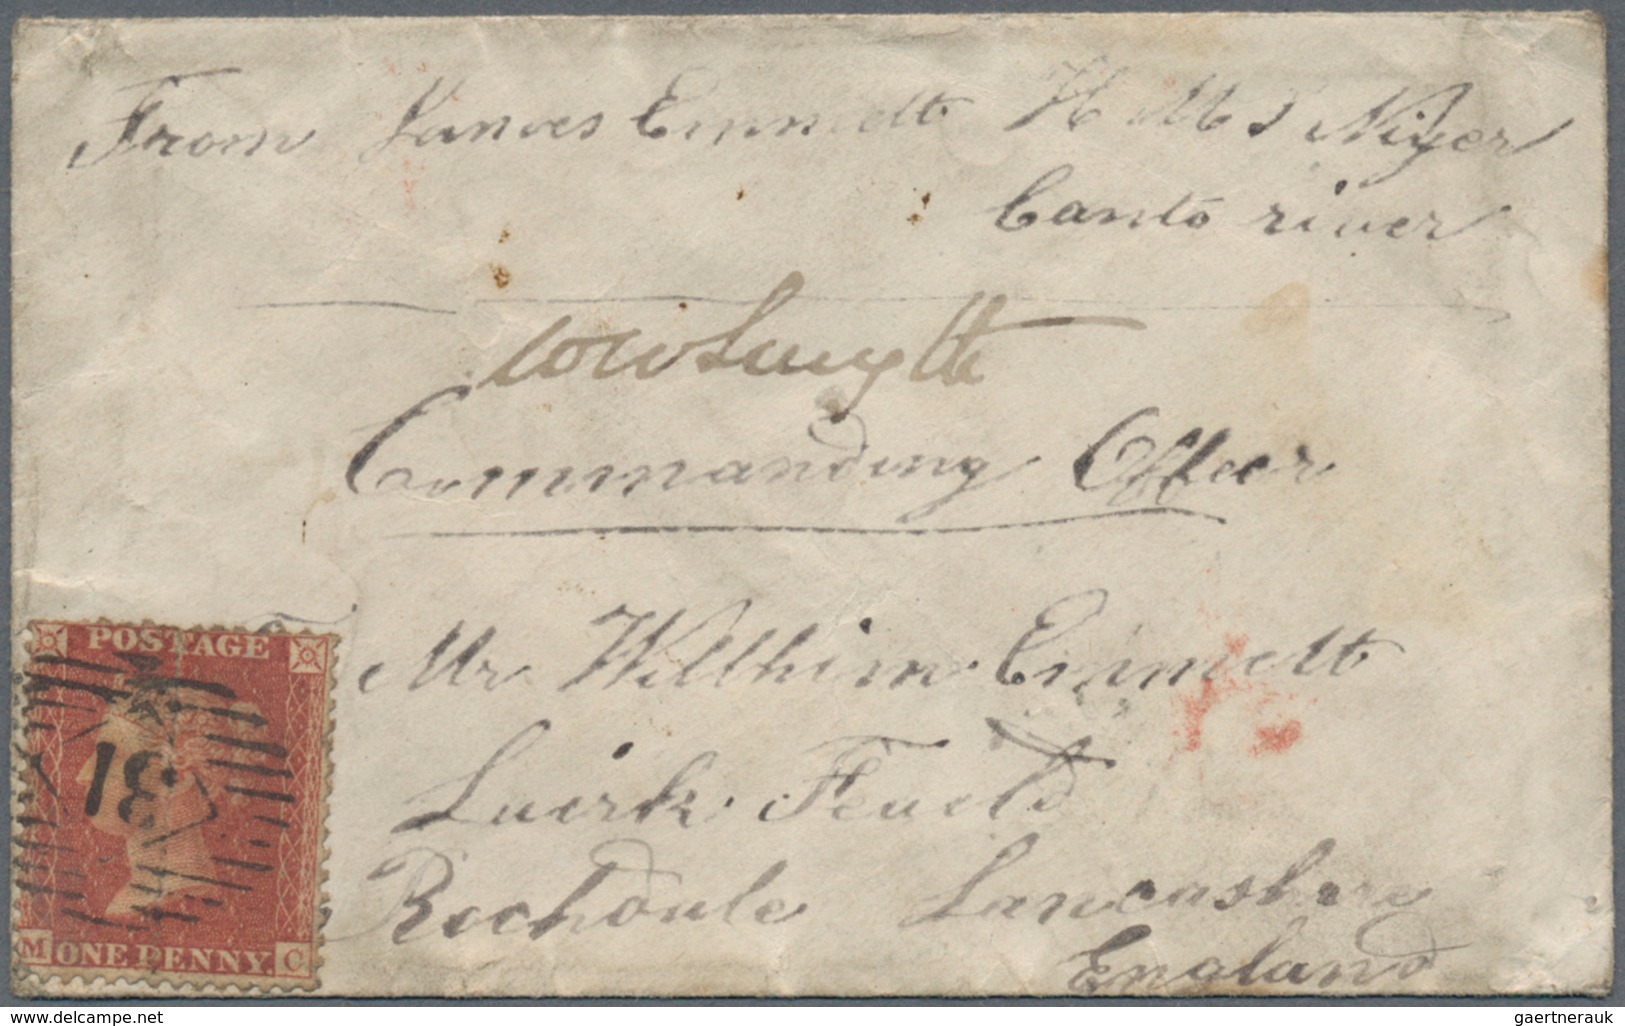 From James Emmett H M S Niger
Canto river
Smyth
Commanding Officer
Mr Willhim Emmett
Rochdale Lancashire
England
POSTAGE
81
M ONE PENNY. C
www.delcampe.net
gaertnerauk